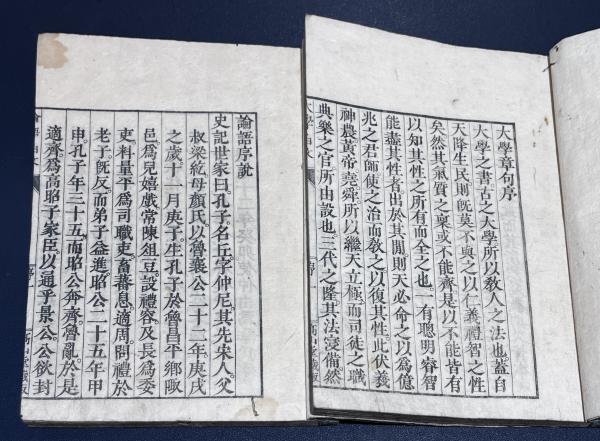 大學章句序
大學之書古之大學所以敎人之法也蓋自
天降生民則旣莫不與之以仁義禮智之性
矣然其氣質之稟或不能齊是以不能皆有
以知其性之所有而全之也一有聰明睿智
能盡其性者出於其閒則天必命之以爲億
兆之君師使之治而敎之以復其性此伏羲
神農黃帝堯舜所以繼天立極而司徒之職
典樂之官所由設也三代之隆其法寖備然
大學白文
論語序說
史記世家曰。孔子名丘。字仲尼。其先宋人。父
叔梁紇。母顏氏。以魯襄公二十二年。庚戌
之歲。十一月庚子。生孔子於魯昌平鄉陬
邑。爲兒嬉戲。常陳俎豆。設禮容。及長。爲委
吏。料量平。爲司職吏。畜蕃息。適周。問禮於
老子。旣反。而弟子益進。昭公二十五年甲
申。孔子年三十五。而昭公奔齊。魯亂。於是
適齊。爲高昭子家臣。以通乎景公。公欲封
論語白文